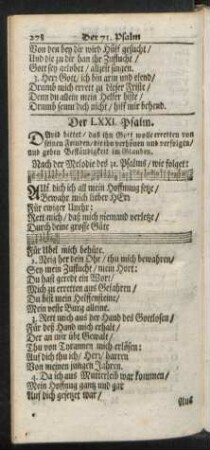 278 Der 71. Psalm
Von den bey dir wird Hülf gesucht/
Und die zu dir han ihr Zuflucht/
Gott sey gelobet/ allzeit singen.
3. Herr Gott/ ich bin arm und elend/
Drumb mich errett zu dieser Frist/
Denn du allein mein Helfer bist/
Drumb seum dich nicht/ hilf mir behend.
Der LXXI. Psalm.
David bittet/ daß ihn Gott wolle erretten von
seinen Feinden/ die ihn verhönen und verfolgen/
und geben Beständigkeit im Glauben.
Nach der Melodie des 31. Psalms/ wie folget:
Auf dich ich all mein Hoffnung setze/
Bewahr mich lieber HErr
Für ewiger Unehr:
Rett mich/ daß mich niemand verletze/
Durch deine grosse Güte
Für Übel mich behüte.
2. Neig her dein Ohr/ thu mich bewahren/
Sey mein Zuflucht/ mein Hort:
Du hast geredt ein Wort/
Mich zu erretten aus Gefahren/
Du bist mein Helffenstein/
Mein veste Burg alleine.
3. Rett mich aus der Hand des Gottlosen/
Für deß Hand mich erhalt/
Der an mir übt Gewalt/
Thu von Tyrannen mich erlösen:
Auf dich thu ich/ Herr/ harren
Von meinen jungen Jahren.
4. Da ich aus Mutterleib war kommen/
Mein Hoffnung gantz und gar
Auf dich gesetzet war/